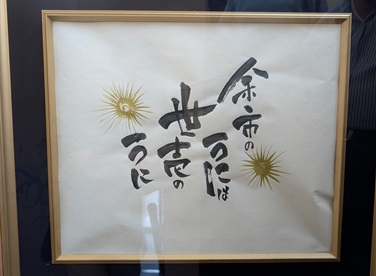 余市の
うには
世壱の
うに